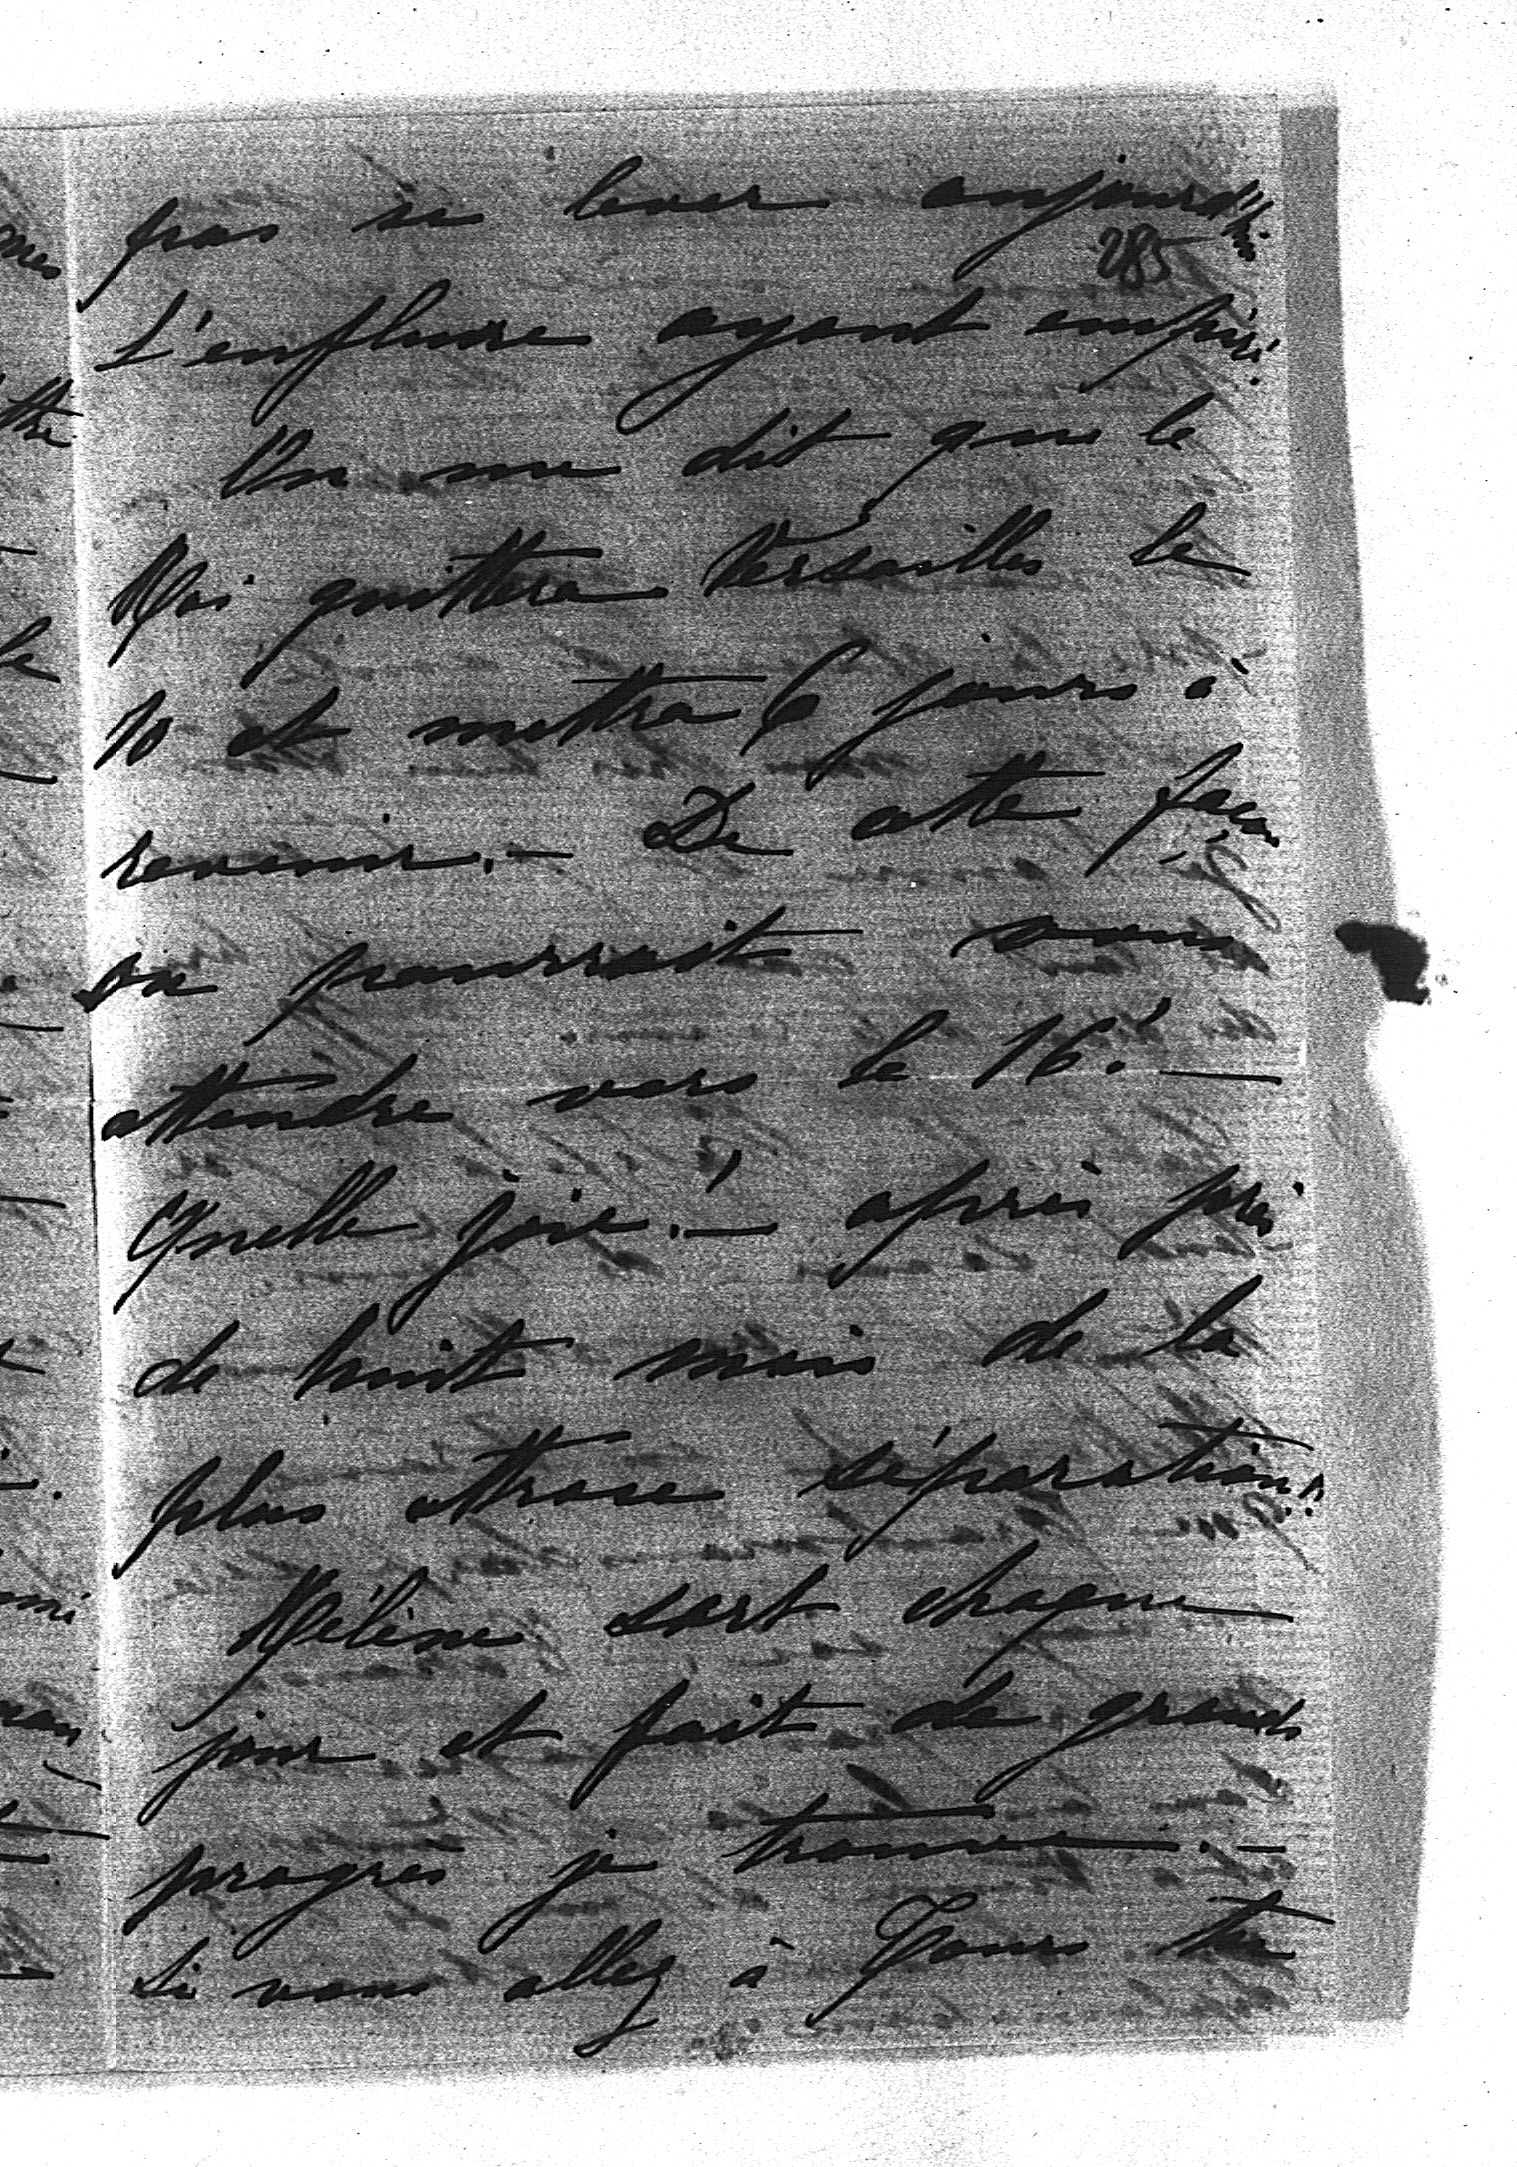 pas se lever aujourd'hui
285
L'enflure ayant empiré.
On me dit que le
Roi quittera Versailles le
10 et mettra 6 jours à
revenir. — De cette façon
on pourrait vous
attendre vers le 16! —
Quelle joie! — après près
de huit mois de la
plus atroce séparation!
Hélène sort chaque
jour et fait de grands
progrès je trouve. —
Si vous allez à Tours tu